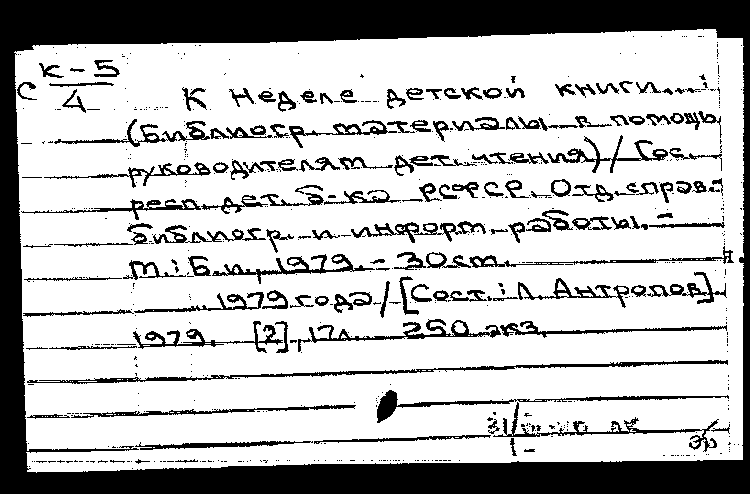 К-5
С 4
К Неделе детской книги...:
(Библиогр. материалы в помощь
руководителям дет. чтения) / Гос.
респ. дет. б-ка РСФСР. Отд. справ.-
библиогр. и информ. работы. -
М.: Б.и., 1979. - 30 см.
... 1979 года / [Сост.: Л. Антропов].
1979. [2], 17л. 250 экз.
31/